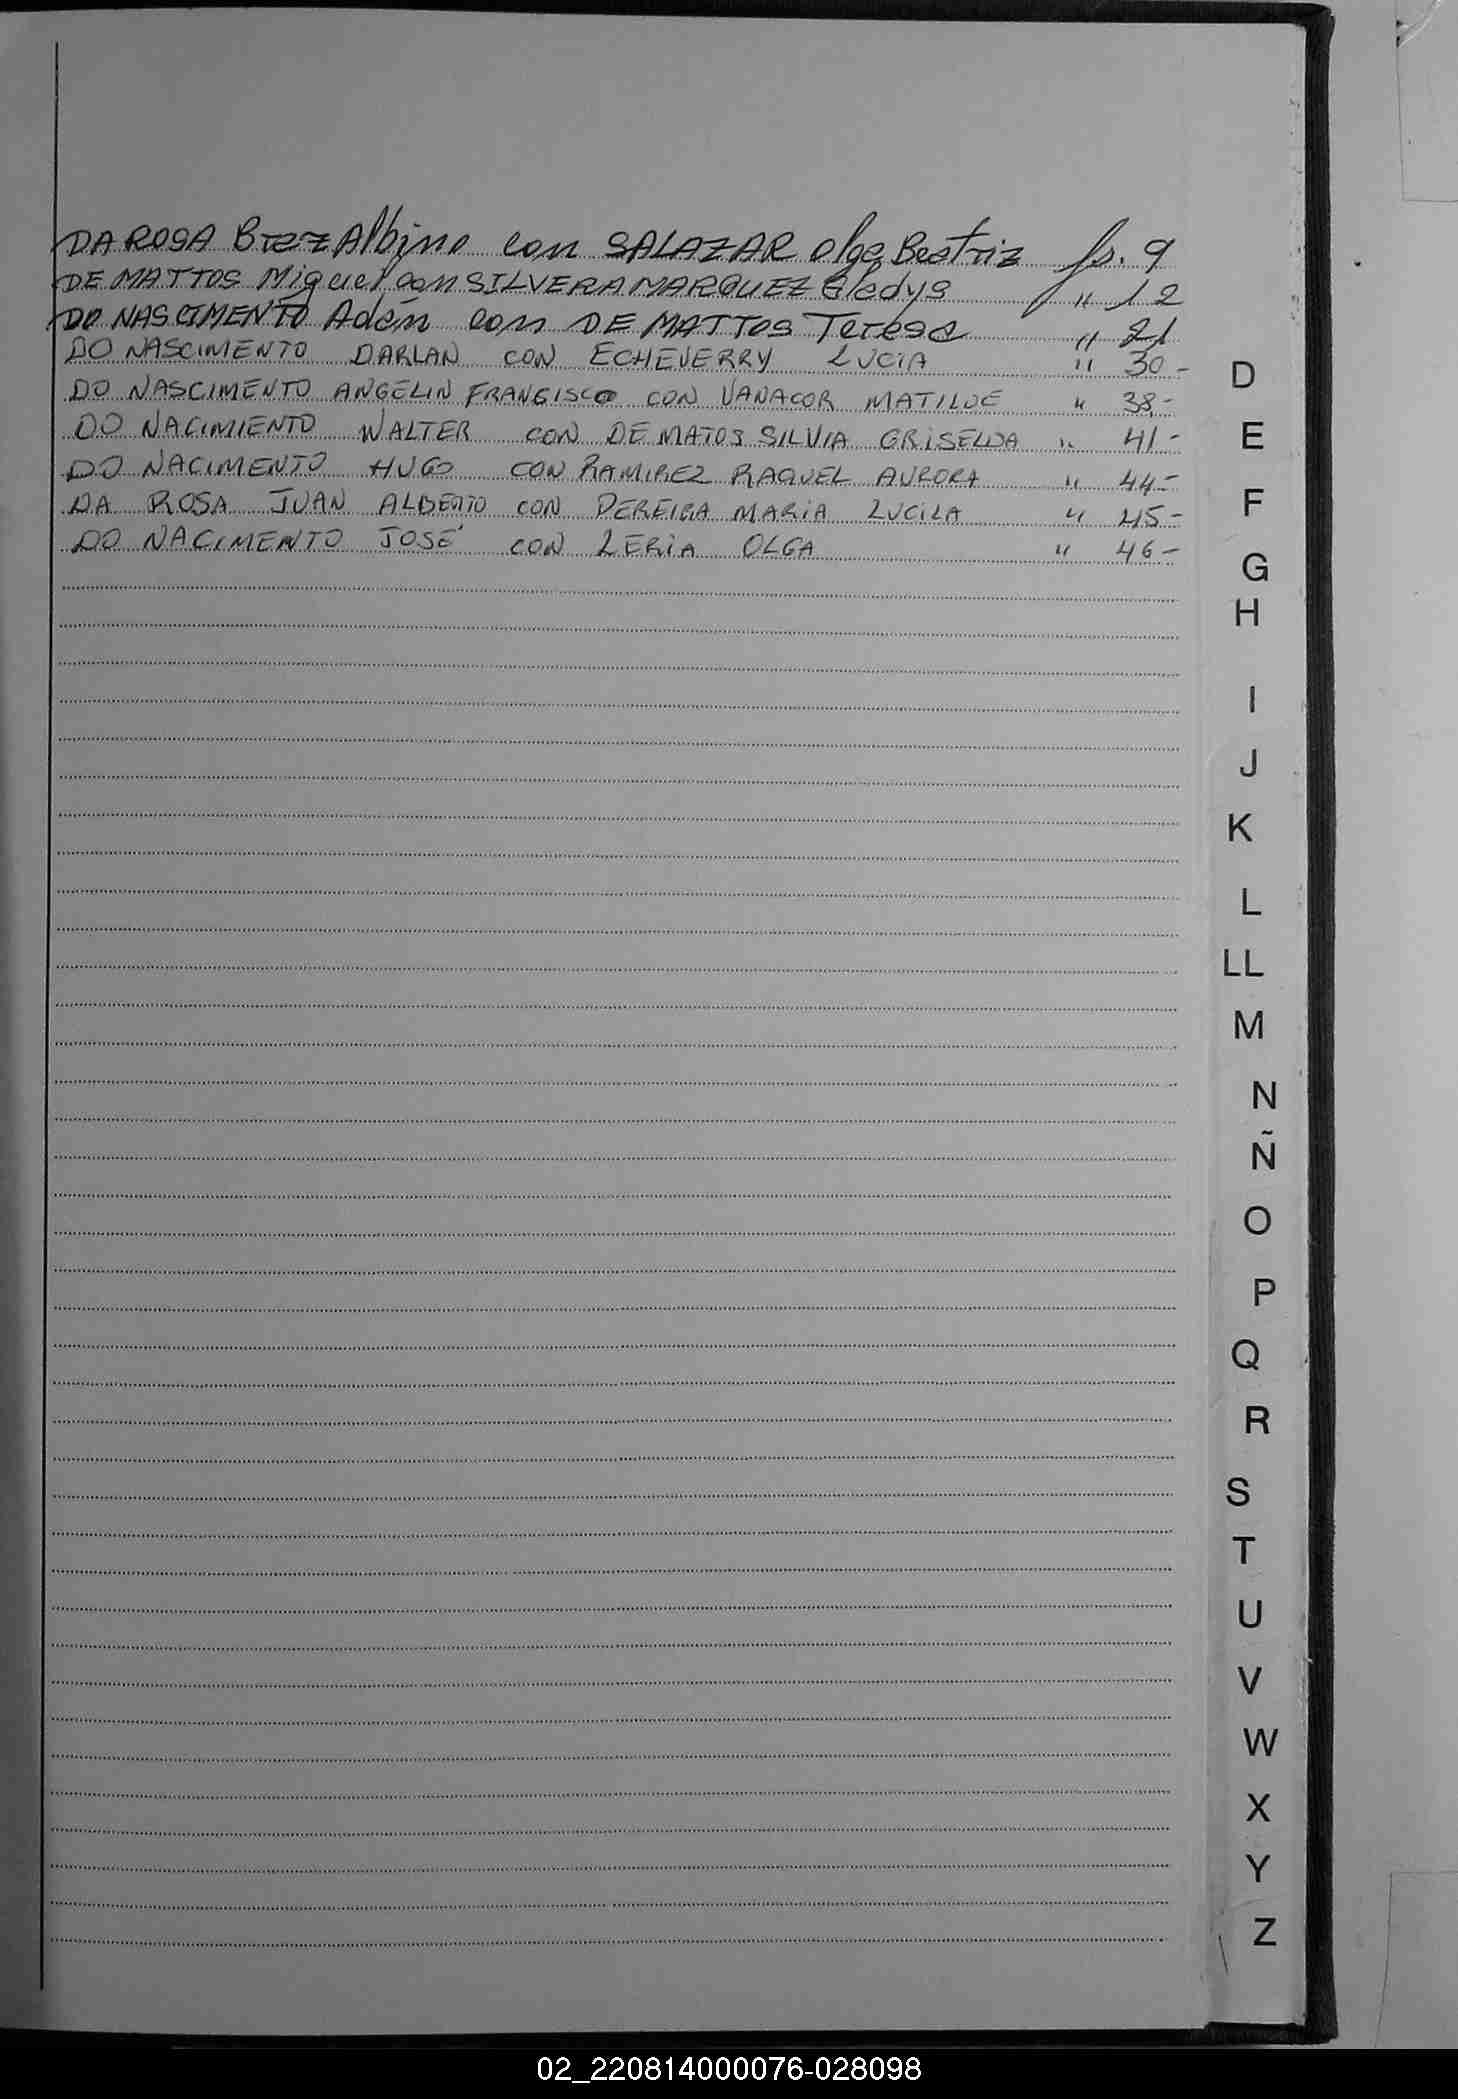 DA ROSA Albino con SALAZAR Olga Beatriz fs. 9
DE MATTOS Miguel con SILVERA MARQUEZ Gladys " 12
DO NASCIMENTO Adán con DE MATTOS Teresa " 21
DO NASCIMENTO DARLAN CON ECHEVERRY LUCIA " 30-
DO NASCIMENTO ANGELIN FRANCISCO CON VANACOR MATILDE " 38-
DO NACIMIENTO WALTER CON DE MATOS SILVIA GRISELDA " 41-
DO NACIMENTO HUGO CON RAMIREZ RAQUEL AURORA " 44-
DA ROSA JUAN ALBERTO CON PEREIRA MARIA LUCILA " 45-
DO NACIMENTO JOSÉ CON LERIA OLGA " 46-
D
E
F
G
H
I
J
K
L
LL
M
N
Ñ
O
P
Q
R
S
T
U
V
W
X
Y
Z
02_220814000076-028098